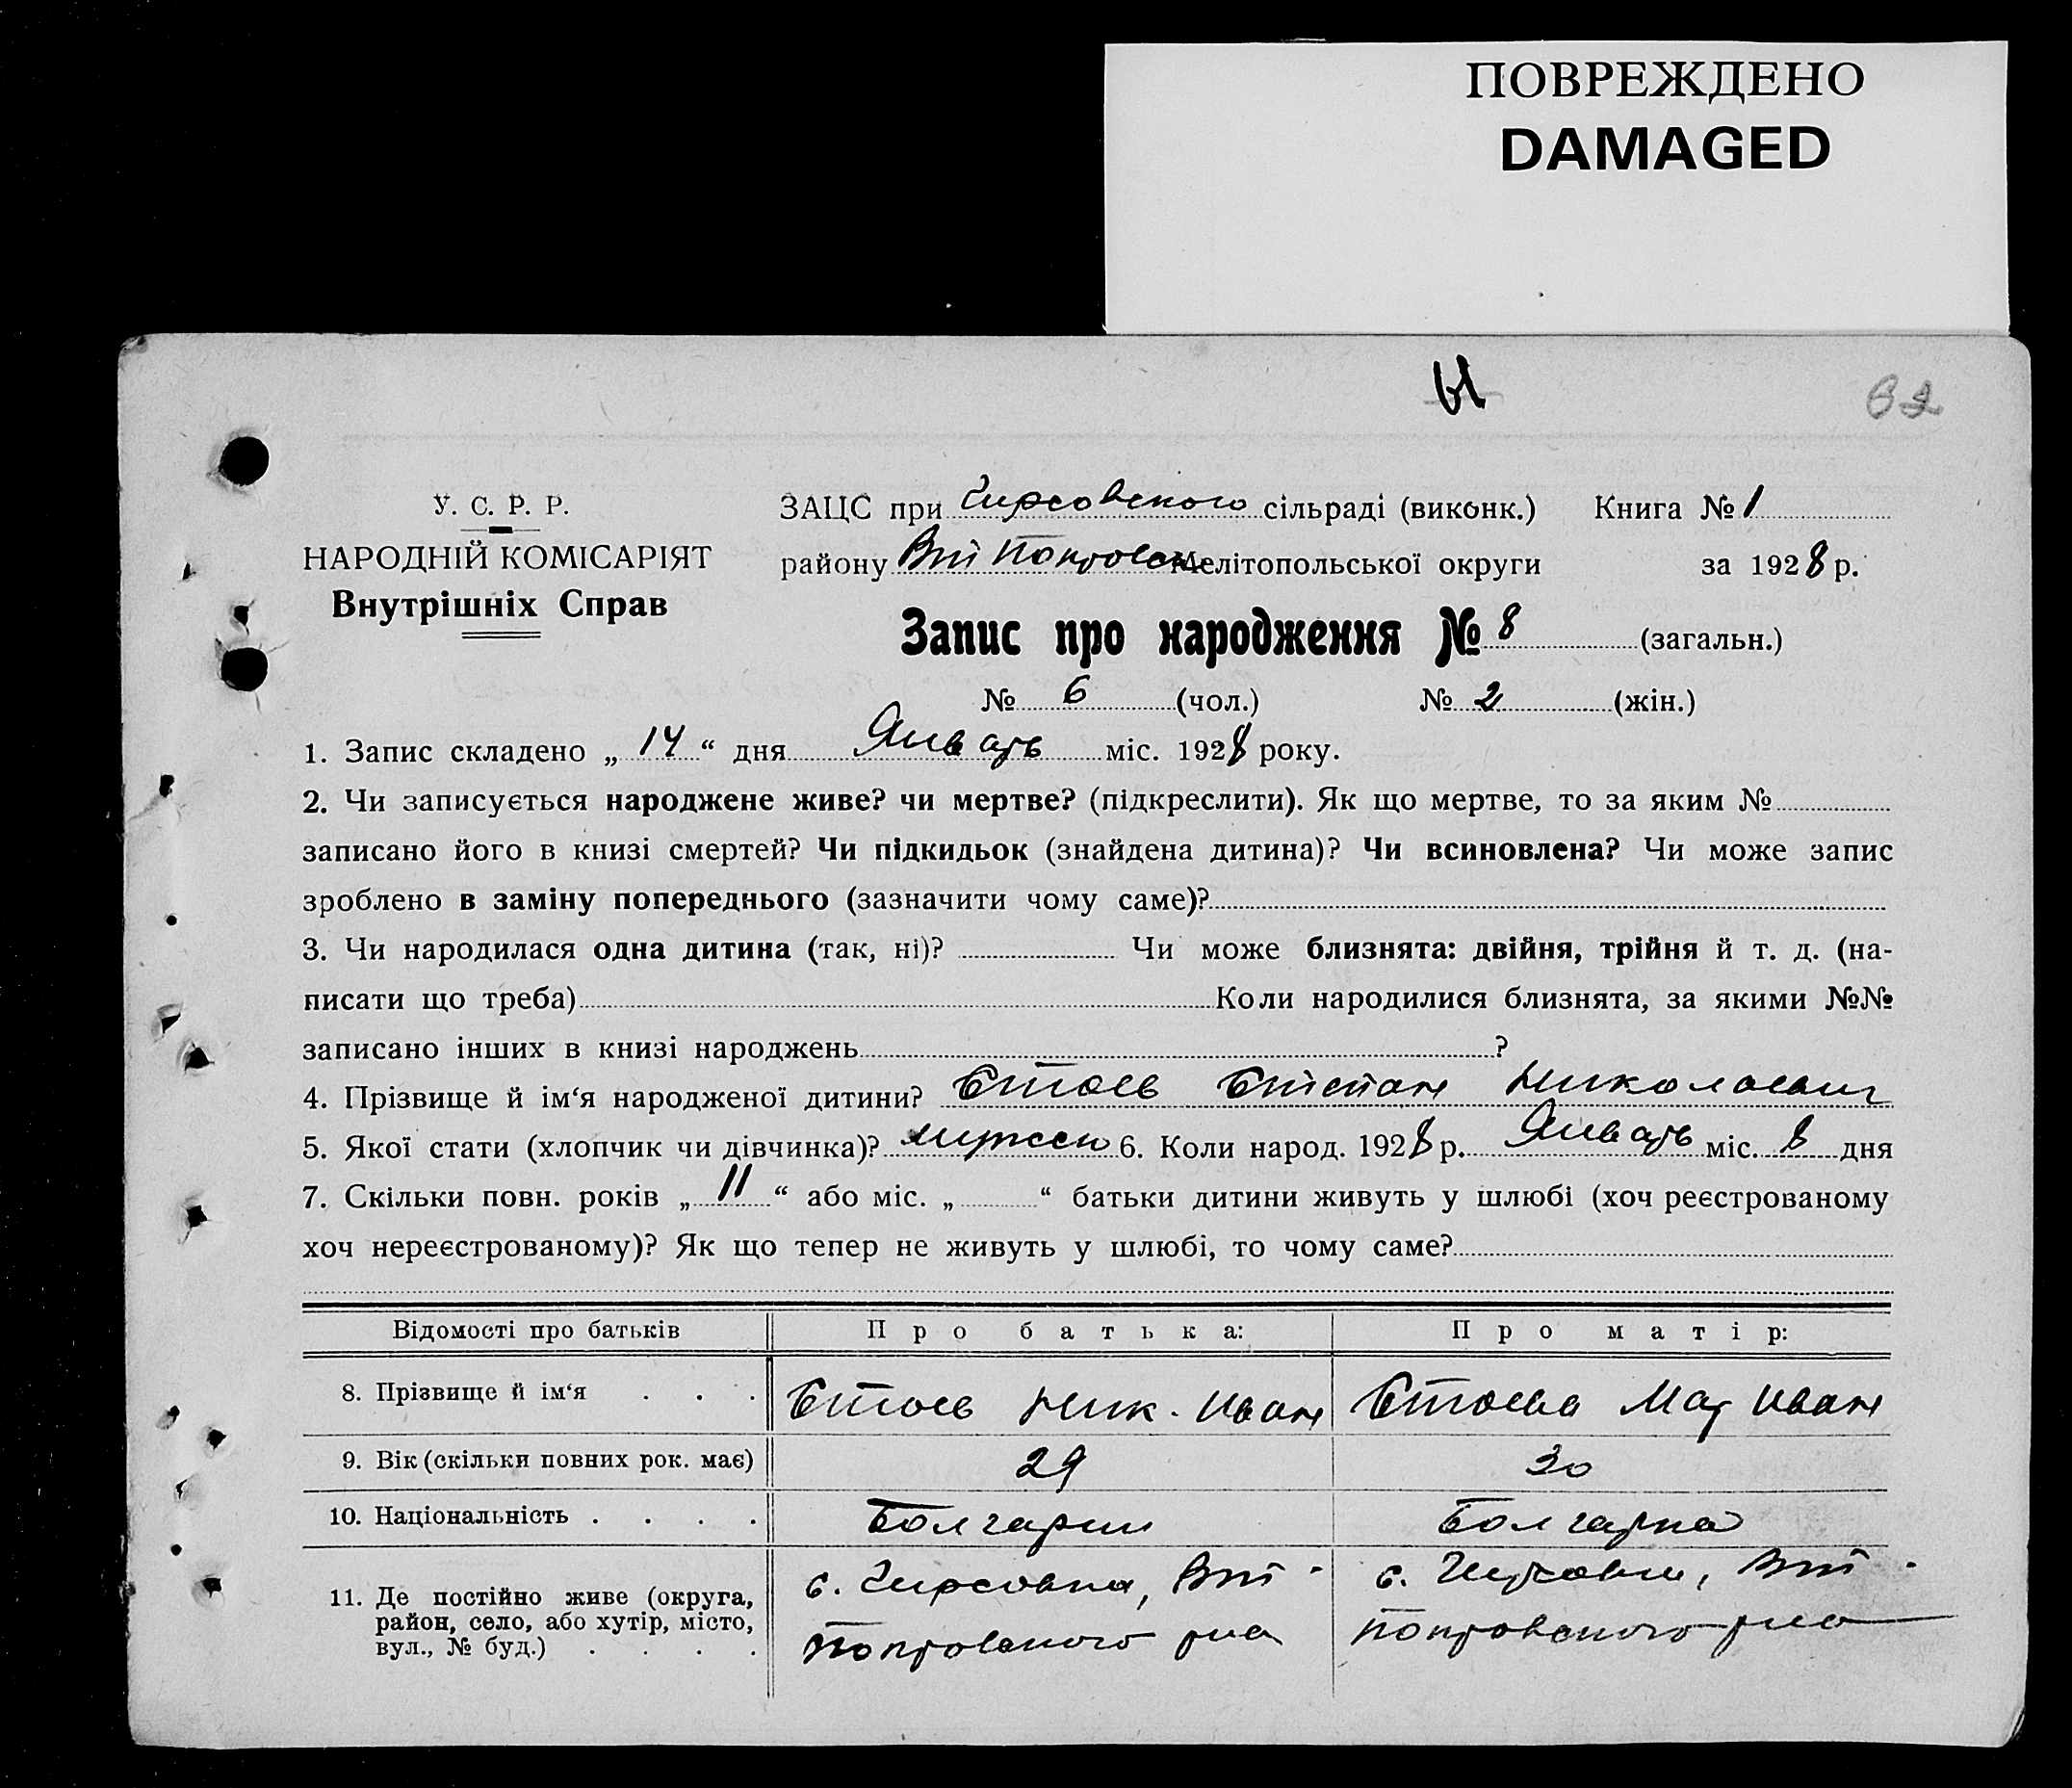 ПОВРЕЖДЕНО
DAMAGED
61
У. С. Р. Р.
НАРОДНІЙ КОМІСАРІЯТ
Внутрішніх Справ
ЗАЦС при Гирсовского сільраді (виконк.) Книга № 1
району Вт Покровск Мелітопольської округи за 1928 р.
Запис про народження № 8 (загальн.)
№ 6 (чол.) № 2 (жін.)
1. Запис складено „ 14 “ дня Январь міс. 1928 року.
2. Чи записується народжене живе? чи мертве? (підкреслити). Як що мертве, то за яким №
записано його в книзі смертей? Чи підкидьок (знайдена дитина)? Чи всиновлена? Чи може запис
зроблено в заміну попереднього (зазначити чому саме)?
3. Чи народилася одна дитина (так, ні)? Чи може близнята: двійня, трійня й т. д. (на-
писати що треба) Коли народилися близнята, за якими №№
записано інших в книзі народжень ?
4. Прізвище й ім‘я народженої дитини? Стоев Степан Николаевич
5. Якої стати (хлопчик чи дівчинка)? мужско 6. Коли народ. 1928 р. Январь міс. 8 дня
7. Скільки повн. років „ 11 “ або міс. „ “ батьки дитини живуть у шлюбі (хоч реєстрованому
хоч нереєстрованому)? Як що тепер не живуть у шлюбі, то чому саме?
Відомості про батьків Про батька: Про матір:
8. Прізвище й ім‘я . . . Стоев Ник. Иван Стоева Мар Иван
9. Вік (скільки повних рок. має) 29 30
10. Національність . . . . Болгарин Болгарка
11. Де постійно живе (округа, район, село, або хутір, місто, вул., № буд.) . . . .
с. Гирсовка, Вт-
Покровского р-на
с. Гирсовки, Вт-
Покровского р-на